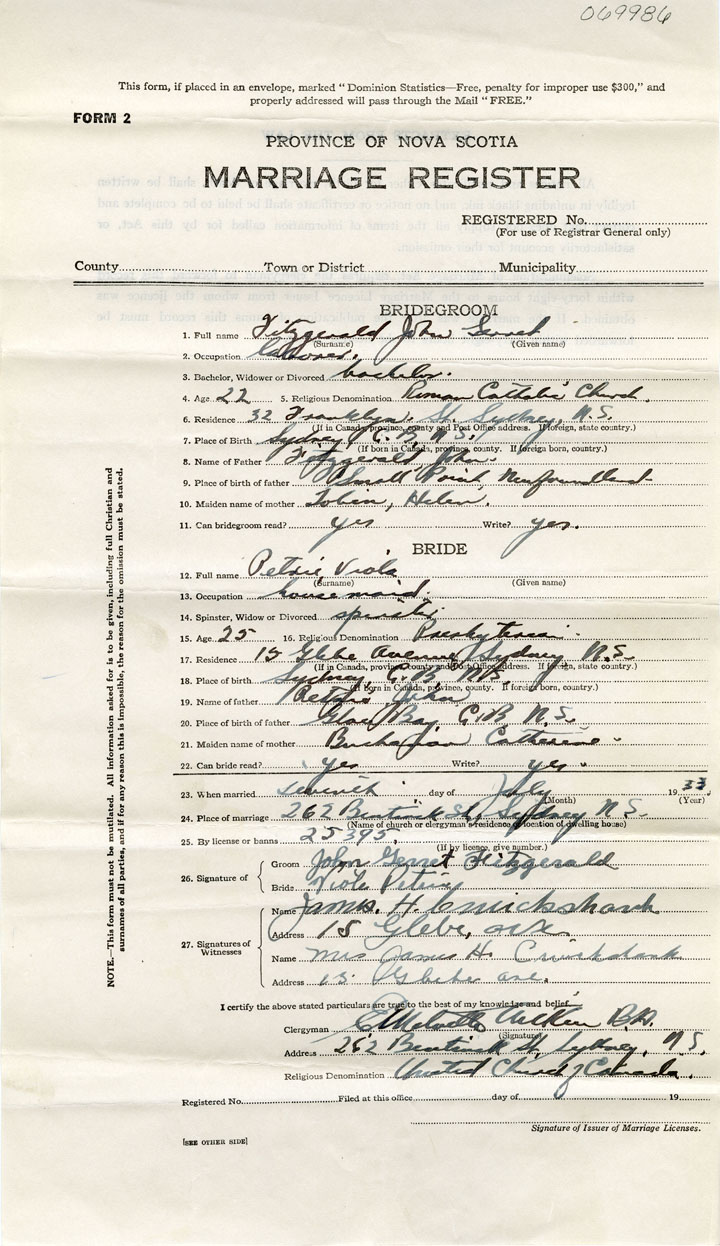 069986
This form, if placed in an envelope, marked "Dominion Statistics—Free, penalty for improper use $300," and
properly addressed will pass through the Mail "FREE."
FORM 2
PROVINCE OF NOVA SCOTIA
MARRIAGE REGISTER
REGISTERED No.
(For use of Registrar General only)
County Town or District Municipality
BRIDEGROOM
1. Full name Fitzgerald John Gerret
(Surname) (Given name)
2. Occupation Labourer.
3. Bachelor, Widower or Divorced bachelor.
4. Age 22 5. Religious Denomination Roman Catholic Church.
6. Residence 32 Franklyn St. Sydney, N.S.
(If in Canada, province, county and Post Office address. If foreign, state country.)
7. Place of Birth Sydney, C.B. N.S.
(If born in Canada, province, county. If foreign born, country.)
8. Name of Father Fitzgerald John.
9. Place of birth of father Small Point Newfoundland
10. Maiden name of mother Tobin, Helen.
11. Can bridegroom read? yes Write? yes.
BRIDE
12. Full name Petrie, Viola
(Surname) (Given name)
13. Occupation housemaid.
14. Spinster, Widow or Divorced spinster
15. Age 25 16. Religious Denomination Presbyterian.
17. Residence 15 Glebe Avenue, Sydney N.S.
(If in Canada, province, county and Post Office address. If foreign, state country.)
18. Place of birth Sydney, C.B. N.S.
(If born in Canada, province, county. If foreign born, country.)
19. Name of father Petrie, John
20. Place of birth of father Glace Bay C.B. N.S.
21. Maiden name of mother Buchanan Catherine
22. Can bride read? yes Write? yes
23. When married seventh day of July 1933
(Month) (Year)
24. Place of marriage 262 Bentinck St., Sydney N.S.
(Name of church or clergyman's residence or location of dwelling house)
25. By license or banns 25395,
(If by licence, give number.)
26. Signature of
Groom John Gerret Fitzgerald
Bride Viola Petrie
27. Signatures of Witnesses
Name James. H. Cruickshank
Address 15 Glebe, ave.
Name Mrs James H. Cruickshank
Address 15 Glebe ave.
I certify the above stated particulars are true to the best of my knowledge and belief.
Clergyman B.A.
(Signature)
Address 262 Bentinck St. Sydney, N.S.
Religious Denomination United Church of Canada.
Registered No. Filed at this office day of 19
Signature of Issuer of Marriage Licenses.
[SEE OTHER SIDE]
NOTE.—This form must not be mutilated. All information asked for is to be given, including full Christian and
surnames of all parties, and if for any reason this is impossible, the reason for the omission must be stated.